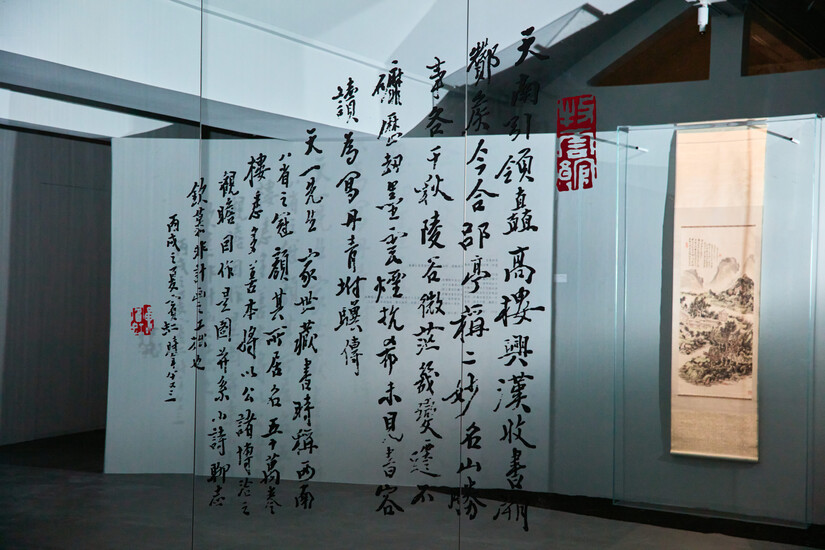 天南引領矗高樓興漢收書溯
酇侯今合郘亭稱二妙名山勝
事各千秋陵谷微茫幾變遷不
磨歷劫墨雲煙抗希未見書容
讀為寫丹青坿驥傳
天一先生家世藏書時稱西南
八省之冠顏其所居名五十萬卷
樓悉多善本將以公諸博洽之
觀瞻因作是圖并系小詩聊志
欽慕非計畫之工拙也
丙戌之夏賓虹時年八十又三